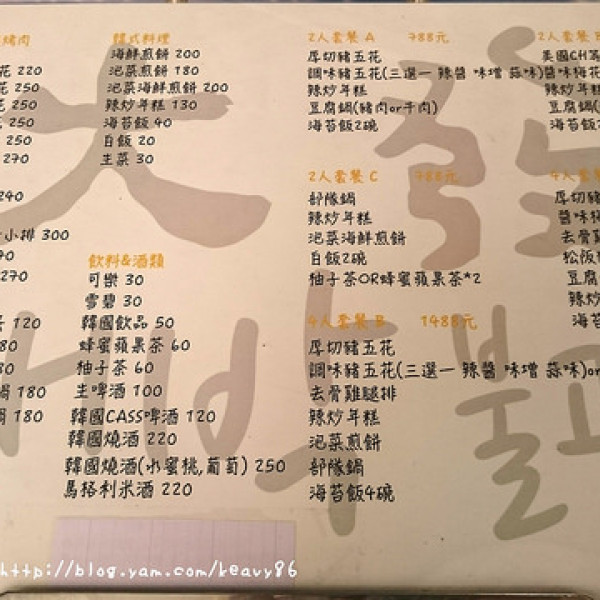 烤肉
花 220
250
花 250
250
250
270
240
小排 300
90
270
120
180
180
鍋 180
鍋 180
韓式料理
海鮮煎餅 200
泡菜煎餅 180
泡菜海鮮煎餅 200
辣炒年糕 130
海苔飯 40
白飯 20
生菜 30
飲料&酒類
可樂 30
雪碧 30
韓國飲品 50
蜂蜜蘋果茶 60
柚子茶 60
生啤酒 100
韓國CASS啤酒 120
韓國燒酒 220
韓國燒酒(水蜜桃,葡萄) 250
馬格利米酒 220
2人套餐 A 788元
厚切豬五花
調味豬五花(三選一 辣醬 味增 蒜味)
辣炒年糕
豆腐鍋(豬肉or牛肉)
海苔飯2碗
2人套餐 C 788元
部隊鍋
辣炒年糕
泡菜海鮮煎餅
白飯2碗
柚子茶OR蜂蜜蘋果茶*2
4人套餐 B 1488元
厚切豬五花
調味豬五花(三選一 辣醬 味增 蒜味)or
去骨雞腿排
辣炒年糕
泡菜煎餅
部隊鍋
海苔飯4碗
2人套餐 B
美國CH
醬味梅花
辣炒年
豆腐鍋
海苔飯2
4人套餐
厚切豬
醬味梅
去骨雞
松阪
豆腐
辣炒
海苔
大發
불고
http://blog.yam.com/keavy86